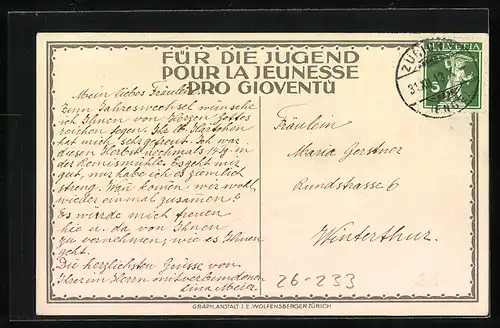 FÜR DIE JUGEND
POUR LA JEUNESSE
PRO GIOVENTÙ
HELVETIA
5
ZÜRICH
31.XII.19
ENGE
Mein liebes Fräulein
Zum Jahreswechsel wünsche
ich Ihnen von Herzen Gottes
reichen Segen. Ihr lb. Kärtchen
hat mich sehr gefreut. Ich war
diesen Herbst nochmals 14 Tg. in
der Kemismühle. Es geht mir
gut, nur habe ich es ziemlich
streng. Wan können wir wohl
wieder einmal zusamen?
Es würde mich freuen
hie u. da von Ihnen
zu vernehmen, wie es Ihnen
geht.
Die herzlichsten Grüsse von
Ihrer im Herrn mitverbundenen
Lina Meier.
Fräulein
Maria Gerstner
Rundstrasse 6
Winterthur.
26-233
GRAPH. ANSTALT J. E. WOLFENSBERGER ZÜRICH